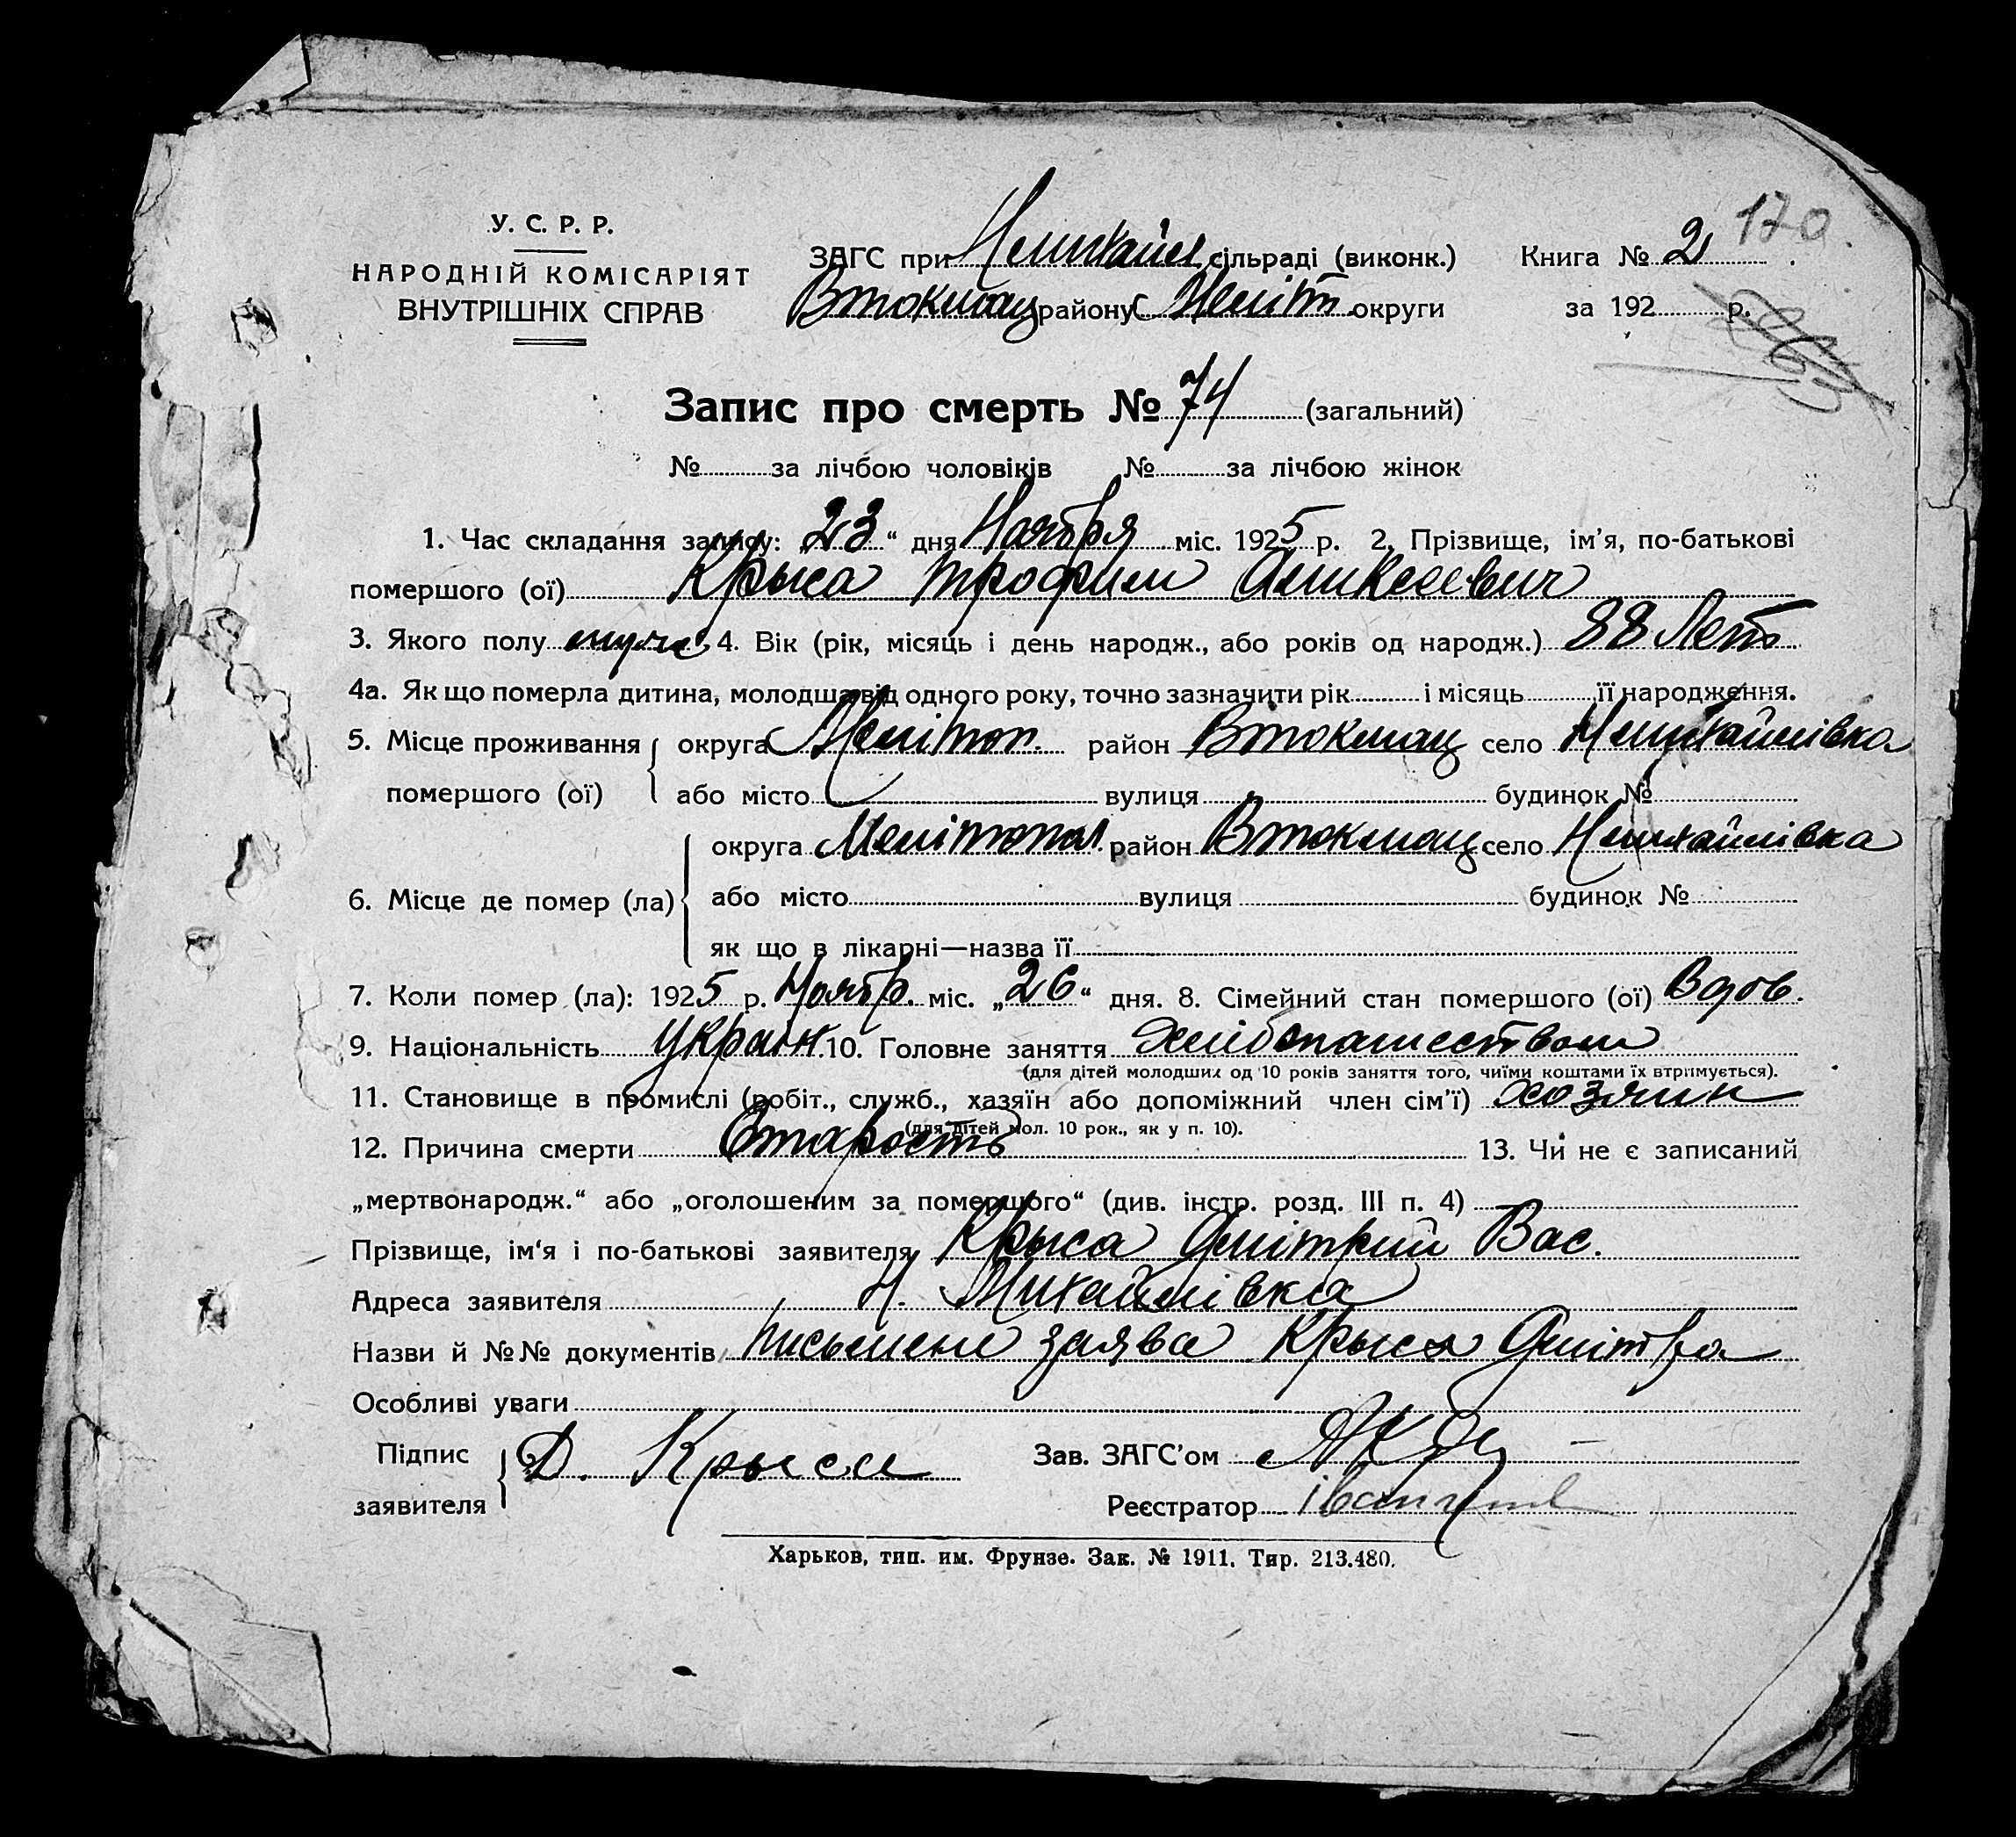 170.
У. С. Р. Р.
НАРОДНІЙ КОМІСАРІЯТ
ВНУТРІШНІХ СПРАВ
ЗАГС при сільраді (виконк.)
Втокмац району Меліт. округи
Книга № 2
за 192 р.
Запис про смерть № 74 (загальний)
№ за лічбою чоловіків № за лічбою жінок
1. Час складання запису: „23“ дня Ноября міс. 1925 р. 2. Прізвище, ім'я, по-батькові
помершого (ої) Крыса Трофим
3. Якого полу муж. 4. Вік (рік, місяць і день народж., або років од народж.) 88 Лет
4а. Як що померла дитина, молодша від одного року, точно зазначити рік і місяць її народження.
5. Місце проживання округа Мелітоп. район Втокмац село Н Михайлівка
помершого (ої) або місто вулиця будинок №
округа Мелітопол район Втокмац село Н Михайлівка
6. Місце де помер (ла) або місто вулиця будинок №
як що в лікарні—назва її
7. Коли помер (ла): 1925 р. Ноябр. міс. „26“ дня. 8. Сімейний стан помершого (ої) Вдов.
9. Національність Україн. 10. Головне заняття хлібопашеством
(для дітей молодших од 10 років заняття того, чиїми коштами їх втримується).
11. Становище в промислі (робіт., служб., хазяїн або допоміжний член сім'ї) хозяин
(для дітей мол. 10 рок., як у п. 10).
12. Причина смерти Старость 13. Чи не є записаний
„мертвонародж.“ або „оголошеним за помершого“ (див. інстр. розд. III п. 4)
Прізвище, ім'я і по-батькові заявителя Крыса Дмітрий Вас.
Адреса заявителя Н. Михайлівка
Назви й №№ документів письмене заява Крыса Дмітра
Особливі уваги
Підпис заявителя Д. Крыса
Зав. ЗАГС'ом
Реєстратор
Харьков, тип. им. Фрунзе. Зак. № 1911. Тир. 213.480.